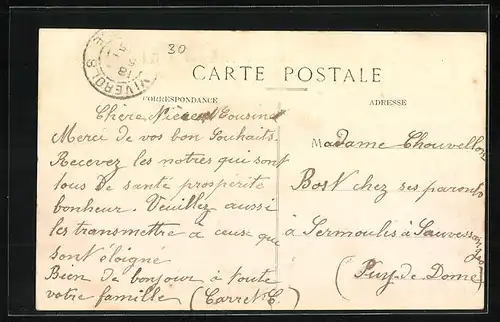 30
VIVEROLS
18
CARTE POSTALE
CORRESPONDANCE
ADRESSE
Chère Nièce et Cousine
Merci de vos bon Souhaits.
Recevez les notres qui sont
tous de santé prospérité
bonheur. Veuillez aussi
les transmettre à ceuse que
sont éloigné
Bien de bonjour à toute
votre famille (Carret C.)
Madame Chouvellon
Bost chez ses parents
à Sermoulis à Sauvessanges
(Puy-de Dome)